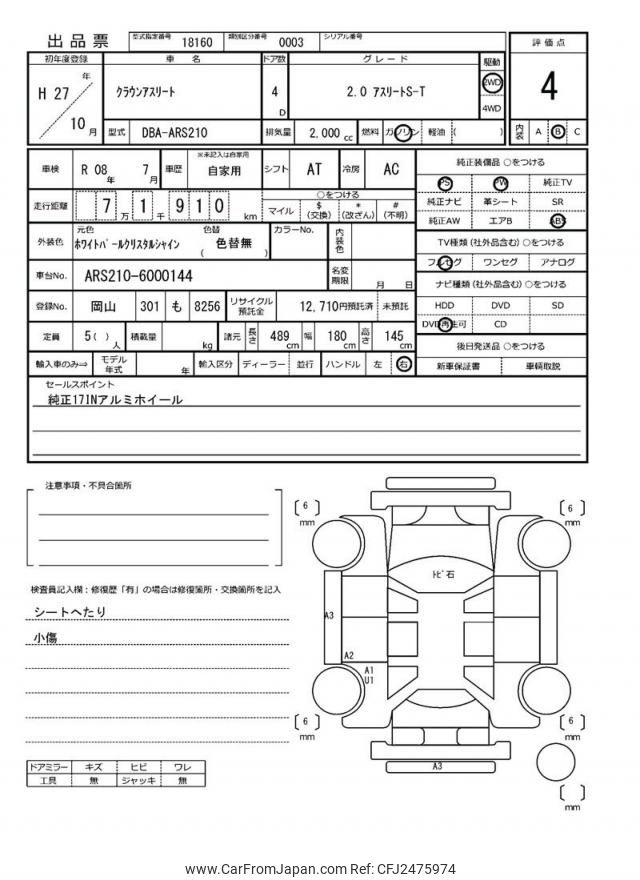 出品票 型式指定番号 18160 類別区分番号 0003 シリアル番号
初年度登録 車名 ドア数 グレード 駆動 評価点
H 27 年 10 月 クラウンアスリート 4 D 2.0 アスリートS-T 2WD 4WD 4
型式 DBA-ARS210 排気量 2,000 cc 燃料 ガソリン 軽油 ( ) 内装 A B C
車検 R 08 年 7 月 車歴 ※未記入は自家用 自家用 シフト AT 冷房 AC
走行距離 7 万 1 千 9 1 0 km ○をつける
マイル $ (交換) * (改ざん) # (不明)
外装色 元色 ホワイトパールクリスタルシャイン 色替 ( 色替無 ) カラーNo. 内装色
車台No. ARS210-6000144 名変期限 月 日
登録No. 岡山 301 も 8256 リサイクル預託金 12,710円預託済 未預託
定員 5( ) 人 積載量 kg 諸元 長さ 489 cm 幅 180 cm 高さ 145 cm
輸入車のみ⇒ モデル年式 年 輸入区分 ディーラー 並行 ハンドル 左 右
純正装備品 ○をつける
PS PW 純正TV
純正ナビ 革シート SR
純正AW エアB ABS
TV種類 (社外品含む) ○をつける
フルセグ ワンセグ アナログ
ナビ種類 (社外品含む) ○をつける
HDD DVD SD
DVD再生可 CD
後日発送品 ○をつける
新車保証書 車輌取説
セールスポイント
純正17INアルミホイール
注意事項・不具合箇所
検査員記入欄：修復歴「有」の場合は修復箇所・交換箇所を記入
シートへたり
小傷
ドアミラー キズ ヒビ ワレ
工具 無 ジャッキ 無
6 mm
6 mm
トビ石
A3
A2
A1
U1
6 mm
6 mm
A3
mm
www.CarFromJapan.com Ref: CFJ2475974